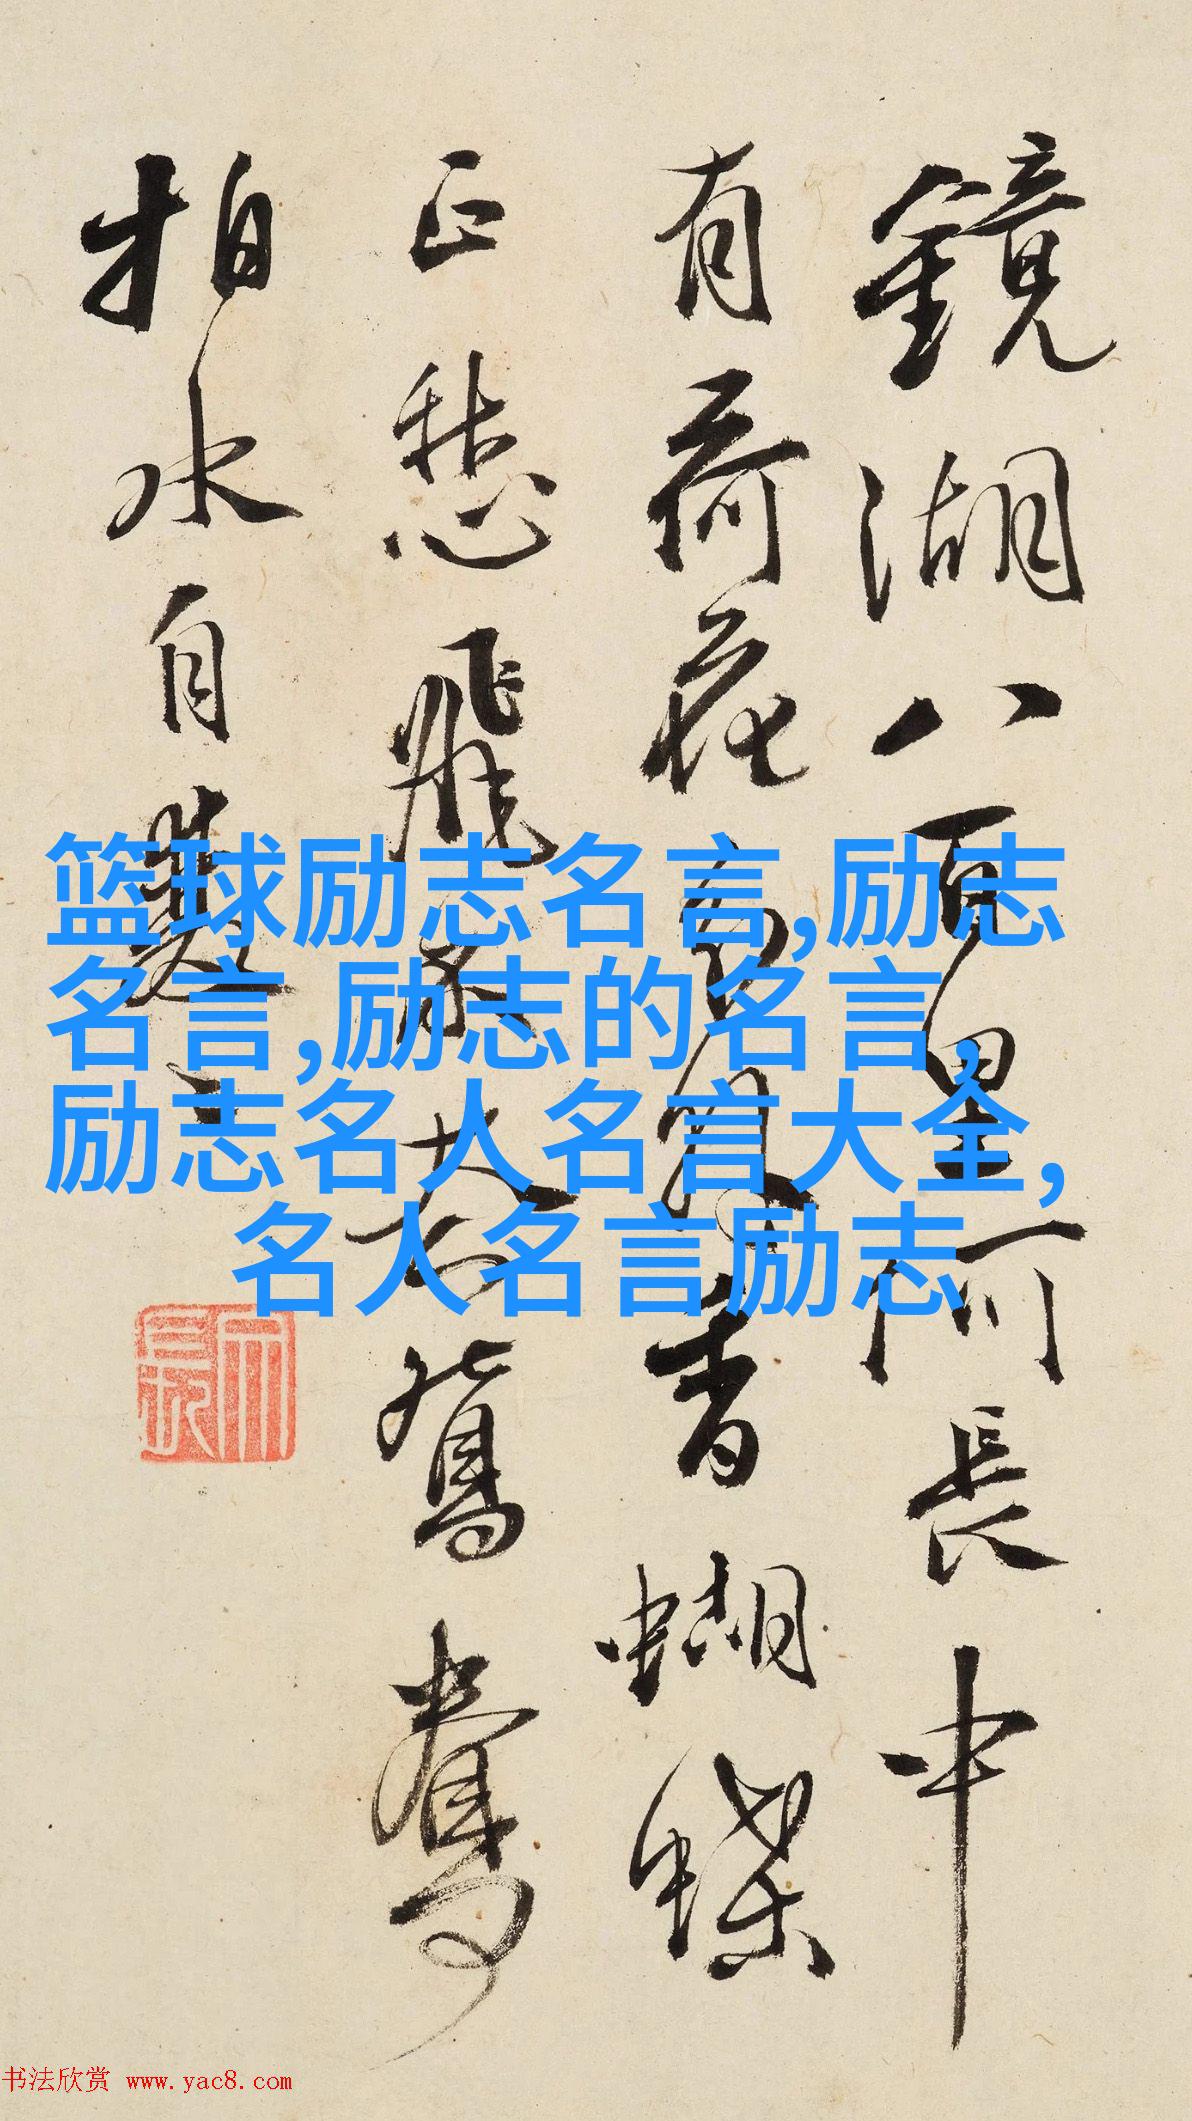 鏡湖八百里何長中
有荷花香蝴蝶
正愁飛不鴛鴦
拍水自雙
篮球励志名言,励志
名言,励志的名言,
励志名人名言大全,
名人名言励志
书法欣赏 www.yac8.com